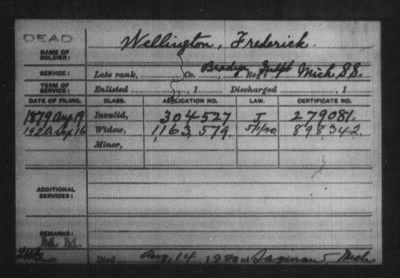 DEAD
NAME OF SOLDIER: Wellington, Frederick.
SERVICE: Late rank, Co. Bradys Indpt Reg't Mich. S.S.
TERM OF SERVICE: Enlisted , 1 Discharged , 1
DATE OF FILING. CLASS. APPLICATION NO. LAW. CERTIFICATE NO.
1879 Aug 19 Invalid, 304527 I 279081.
1920 Aug 16 Widow, 1,163,579. 898342.
Minor,
ADDITIONAL SERVICES:
REMARKS:
Died Aug. 14, 1920 at Saginaw Mich